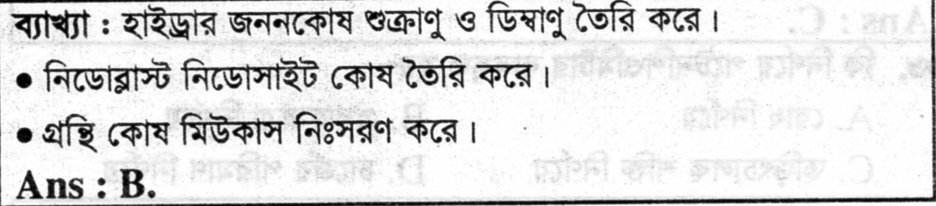 ব্যাখ্যা : হাইড্রার জননকোষ শুক্রাণু ও ডিম্বাণু তৈরি করে।
● নিডোব্লাস্ট নিডোসাইট কোষ তৈরি করে।
● গ্রন্থি কোষ মিউকাস নিঃসরণ করে।
Ans : B.